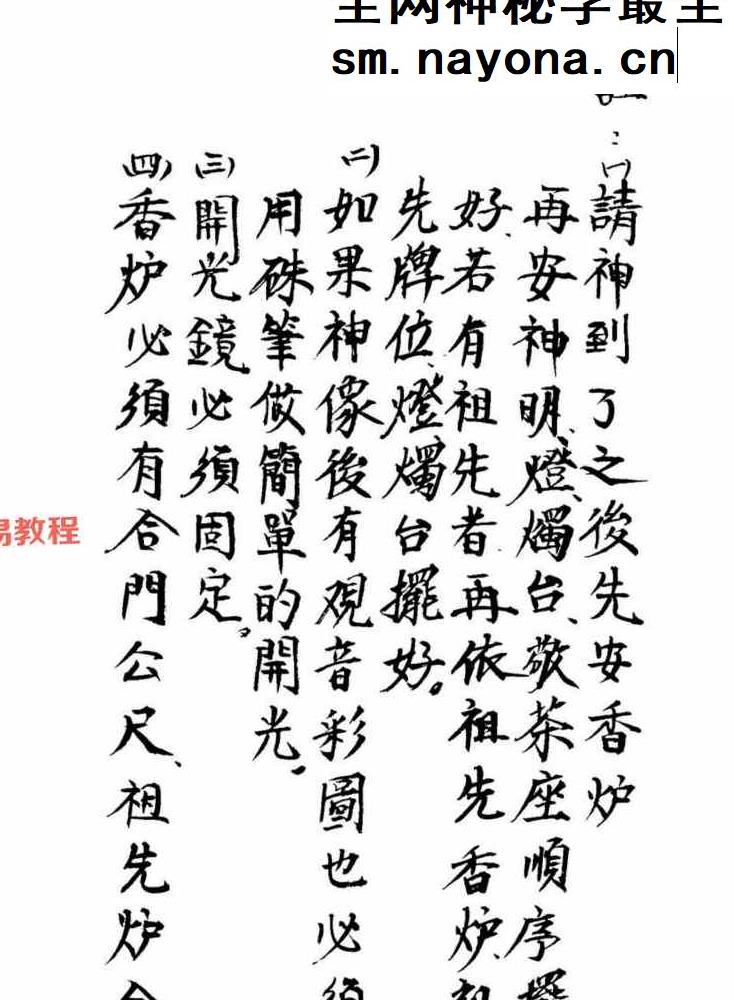 sm.nayona.cn
註：㈠請神到了之後先安香炉
再安神明、燈、燭台、敬茶座順序擺
好、若有祖先者再依祖先香炉、
先牌位、燈燭台擺好。
㈡如果神像後有観音彩圖也必須
用硃筆做簡單的開光。
㈢開光鏡必須固定。
㈣香炉必須有合門公尺、祖先炉合
易教程